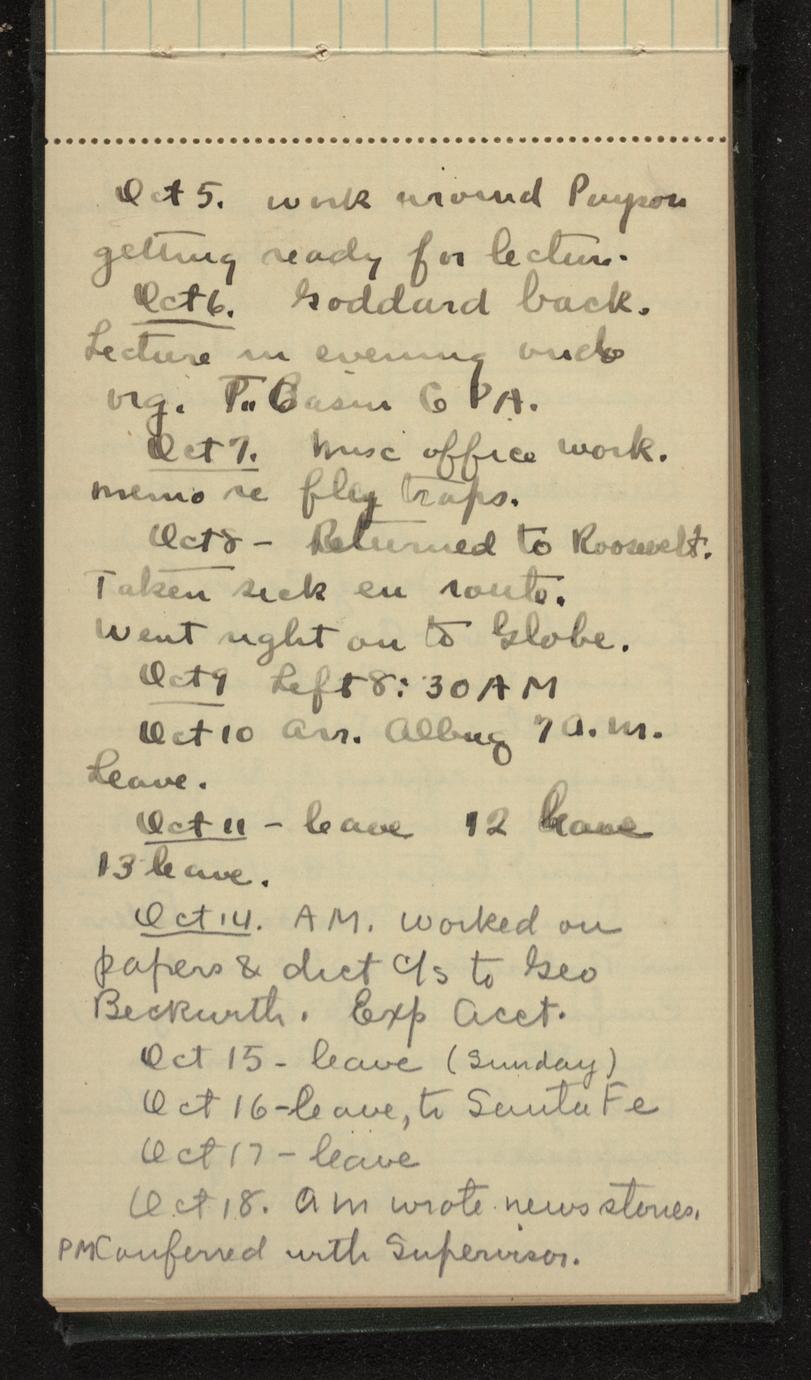 Oct 5. work around Payson
getting ready for lecture.
Oct 6. Goddard back.
Lecture in evening
org. T. Basin G P A.
Oct 7. Misc office work.
memo re fly traps.
Oct 8 - Returned to Roosevelt.
Taken sick en route.
Went right on to Globe.
Oct 9 Left 8:30 AM
Oct 10 arr. Albuq 7 a.m.
Leave.
Oct 11 - leave 12 leave
13 leave.
Oct 14. AM. worked on
papers & dict to Geo
Beckwith. Exp Acct.
Oct 15 - leave (Sunday)
Oct 16 - leave, to Santa Fe
Oct 17 - leave
Oct 18. am wrote news stories.
PM Conferred with Supervisor.